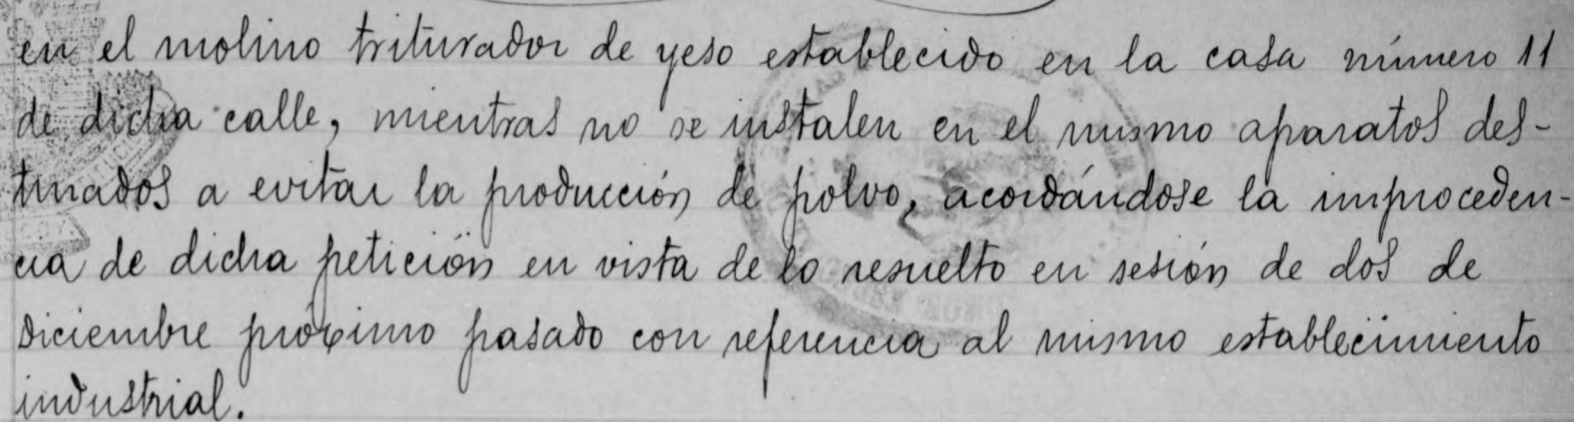 en el molino triturador de yeso establecido en la casa número 11
de dicha calle, mientras no se instalen en el mismo aparatos des-
tinados a evitar la producción de polvo, acordándose la improceden-
cia de dicha petición en vista de lo resuelto en sesión de dos de
diciembre próximo pasado con referencia al mismo establecimiento
industrial.